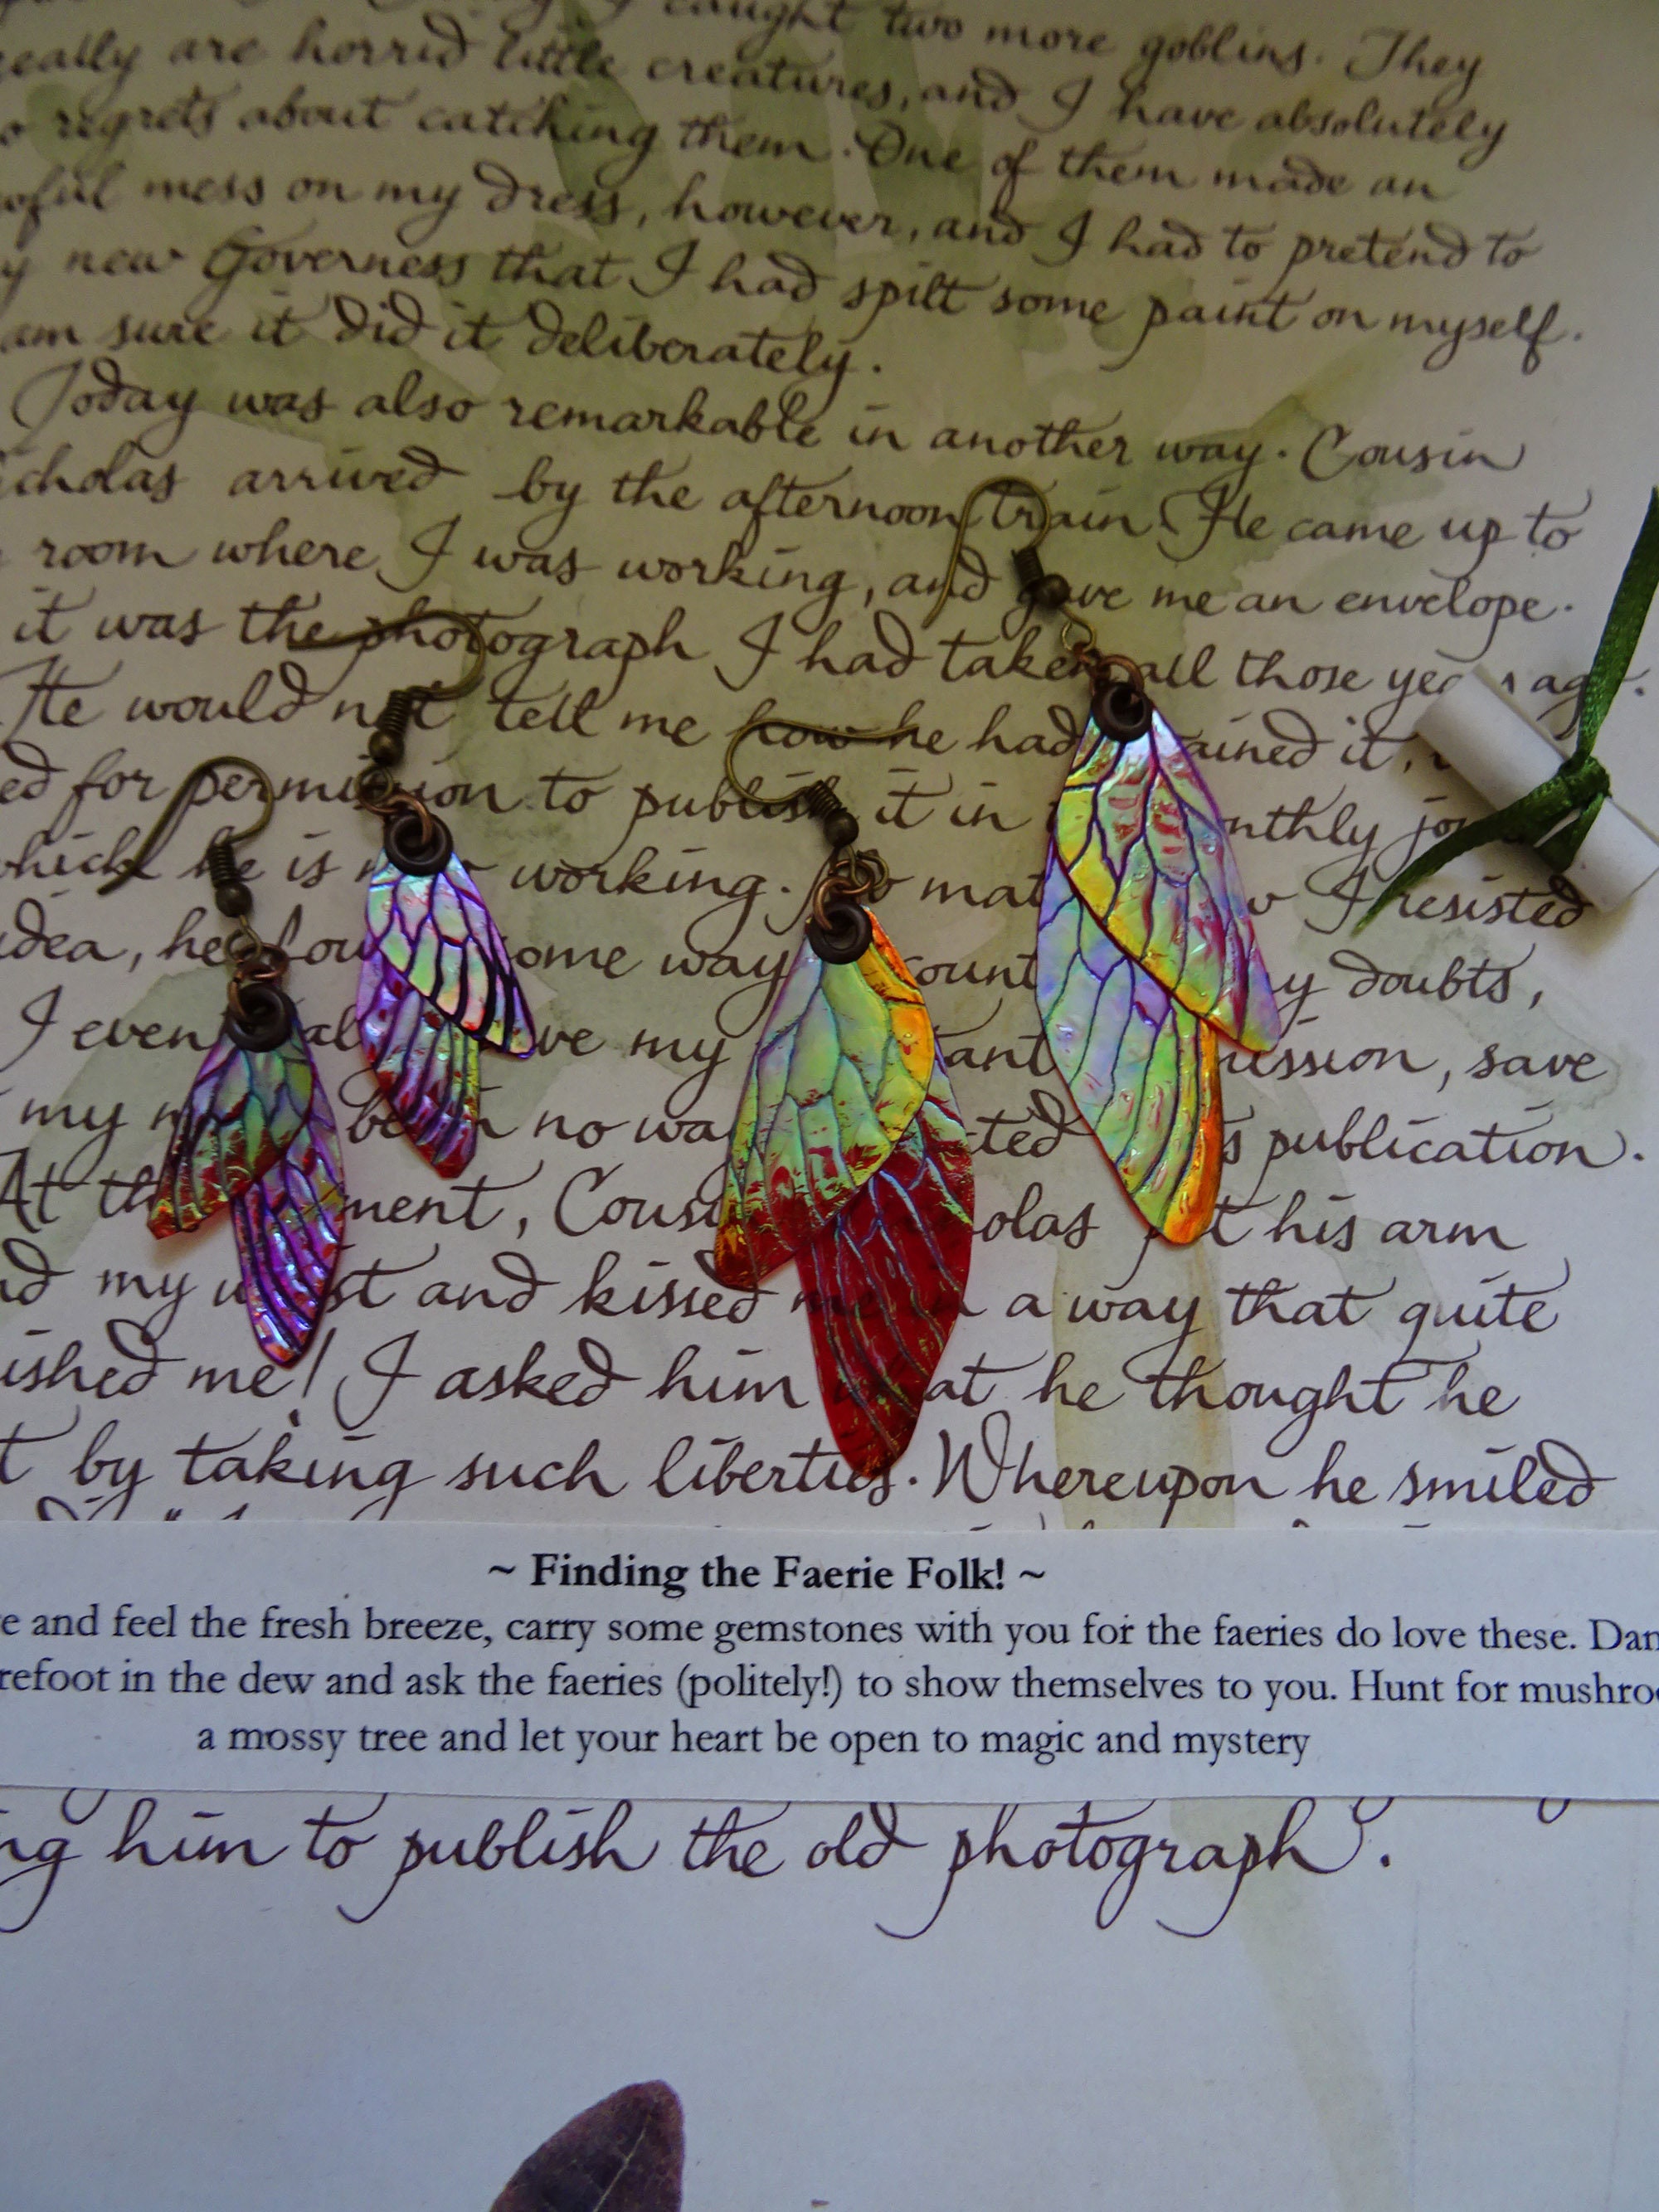 caught two more goblins. They
really are horrid little creatures, and I have absolutely
regrets about catching them. One of them made an
mess on my dress, however, and I had to pretend to
new Governess that I had spilt some paint on myself.
am sure it did it deliberately.
Today was also remarkable in another way. Cousin
icholas arrived by the afternoon train. He came up to
room where I was working, and gave me an envelope.
it was the photograph I had taken all those years ago.
He would not tell me how he had ained it,
ed for permission to publish it in nthly jo
which he is working. mat I resisted
idea, he fou some way count y doubts,
I even al ve my ant ission, save
my be in no wa ted s publication.
At th ment, Cous olas his arm
my w st and kissed me a way that quite
ished me! I asked him at he thought he
t by taking such liberties. Whereupon he smiled
~ Finding the Faerie Folk! ~
e and feel the fresh breeze, carry some gemstones with you for the faeries do love these. Dan
refoot in the dew and ask the faeries (politely!) to show themselves to you. Hunt for mushroo
a mossy tree and let your heart be open to magic and mystery
ng him to publish the old photograph.